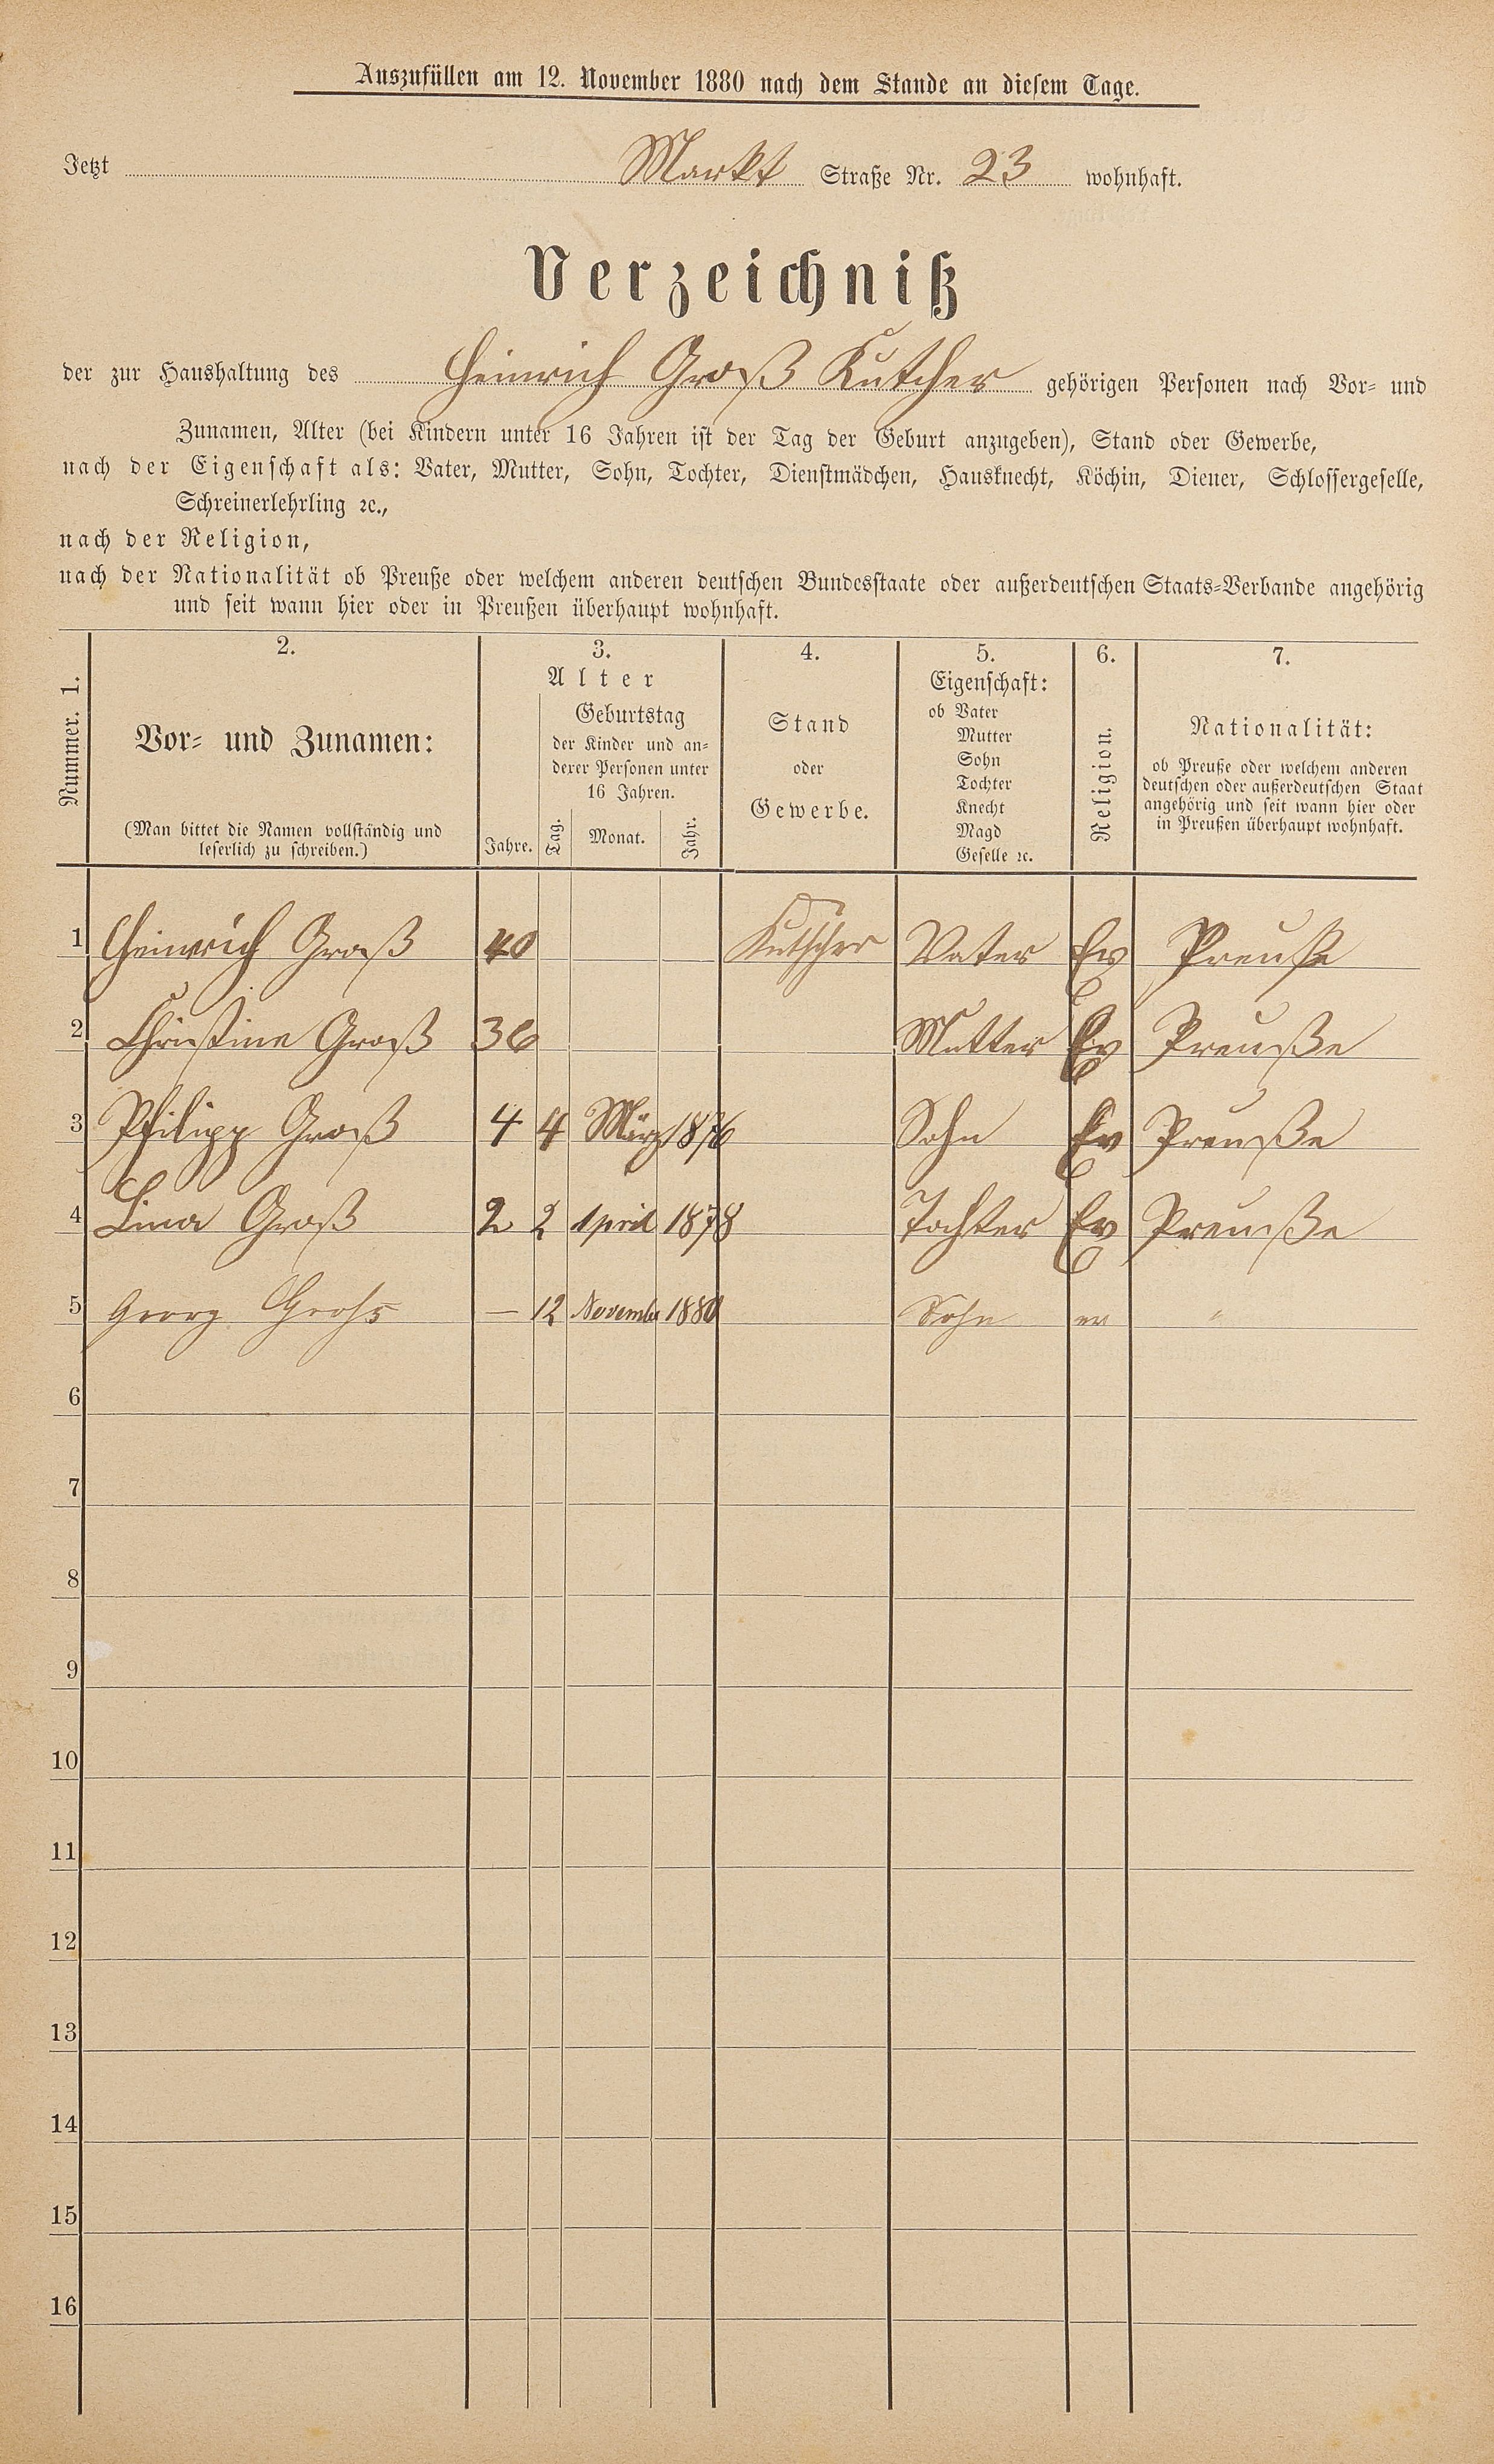 Auszufüllen am 12. November 1880 nach dem Stande an diesem Tage.
Jetzt Markt Straße Nr. 23 wohnhaft.
Verzeichniß
der zur Haushaltung des Heinrich Groß Kutcher gehörigen Personen nach Vor- und
Zunamen, Alter (bei Kindern unter 16 Jahren ist der Tag der Geburt anzugeben), Stand oder Gewerbe,
nach der Eigenschaft als: Vater, Mutter, Sohn, Tochter, Dienstmädchen, Hausknecht, Köchin, Diener, Schlossergeselle,
Schreinerlehrling ꝛc.,
nach der Religion,
nach der Nationalität ob Preuße oder welchem anderen deutschen Bundesstaate oder außerdeutschen Staats-Verbande angehörig
und seit wann hier oder in Preußen überhaupt wohnhaft.
Nummer. 1.
2.
Vor- und Zunamen:
(Man bittet die Namen vollständig und
leserlich zu schreiben.)
3.
Alter
Geburtstag
der Kinder und an-
derer Personen unter
16 Jahren.
Jahre. Tag. Monat. Jahr.
4.
Stand
oder
Gewerbe.
5.
Eigenschaft:
ob Vater
Mutter
Sohn
Tochter
Knecht
Magd
Geselle ꝛc.
6.
Religion.
7.
Nationalität:
ob Preuße oder welchem anderen
deutschen oder außerdeutschen Staat
angehörig und seit wann hier oder
in Preußen überhaupt wohnhaft.
1 Heinrich Groß 40 Kutscher Vater Ev Preuße
2 Christine Groß 36 Mutter Ev Preuße
3 Philipp Groß 4 4 März 1876 Sohn Ev Preuße
4 Lina Groß 2 2 April 1878 Tochter Ev Preuße
5 Georg Grohs — 12 November 1880 Sohn ev "
6
7
8
9
10
11
12
13
14
15
16